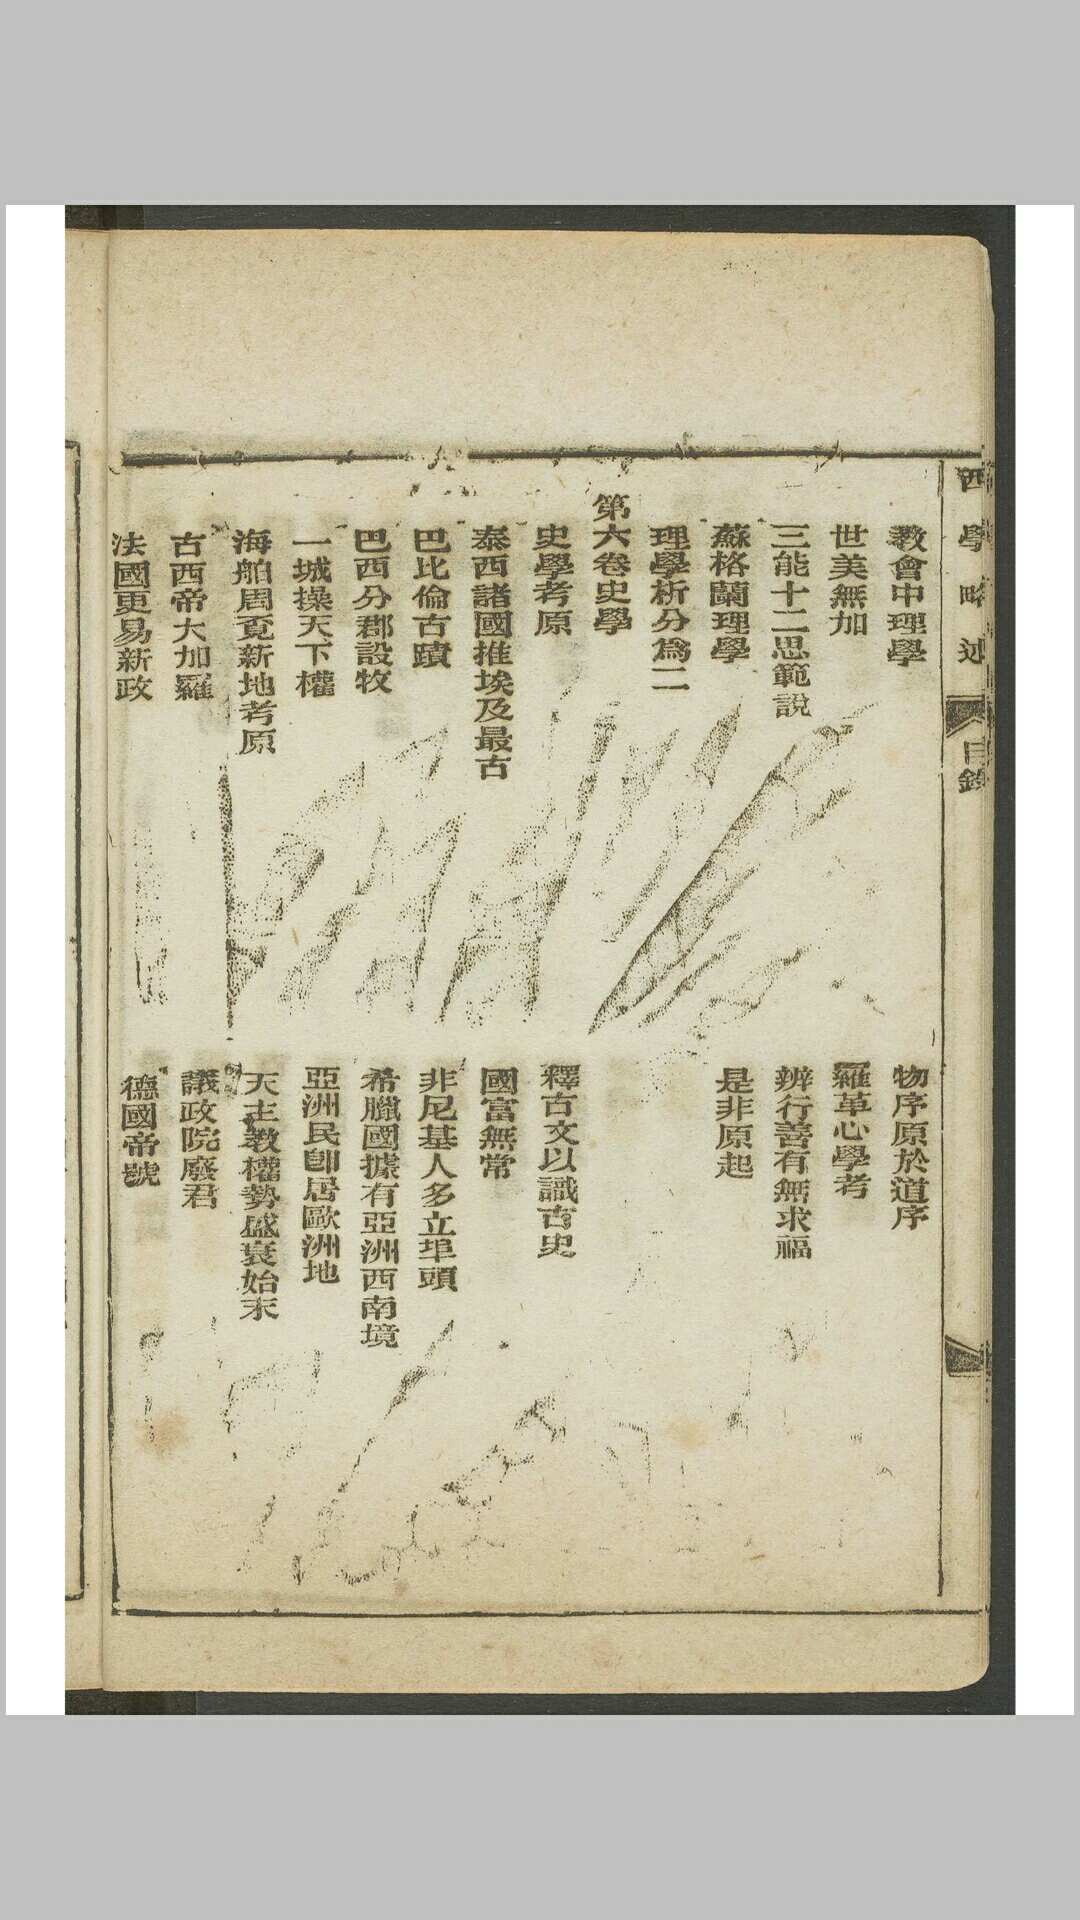 西學略述
目錄
教會中理學
物序原於道序
世美無加
羅革心學考
三能十二思範說
辨行善有無求福
蘇格蘭理學
是非原起
理學析分為二
第六卷史學
史學考原
釋古文以識古史
泰西諸國推埃及最古
國富無常
巴比倫古蹟
非尼基人多立埠頭
巴西分郡設牧
希臘國據有亞洲西南境
一城操天下權
亞洲民卽居歐洲地
海舶周覓新地考原
天主教權勢盛衰始末
古西帝大加羅
議政院廢君
法國更易新政
德國帝號